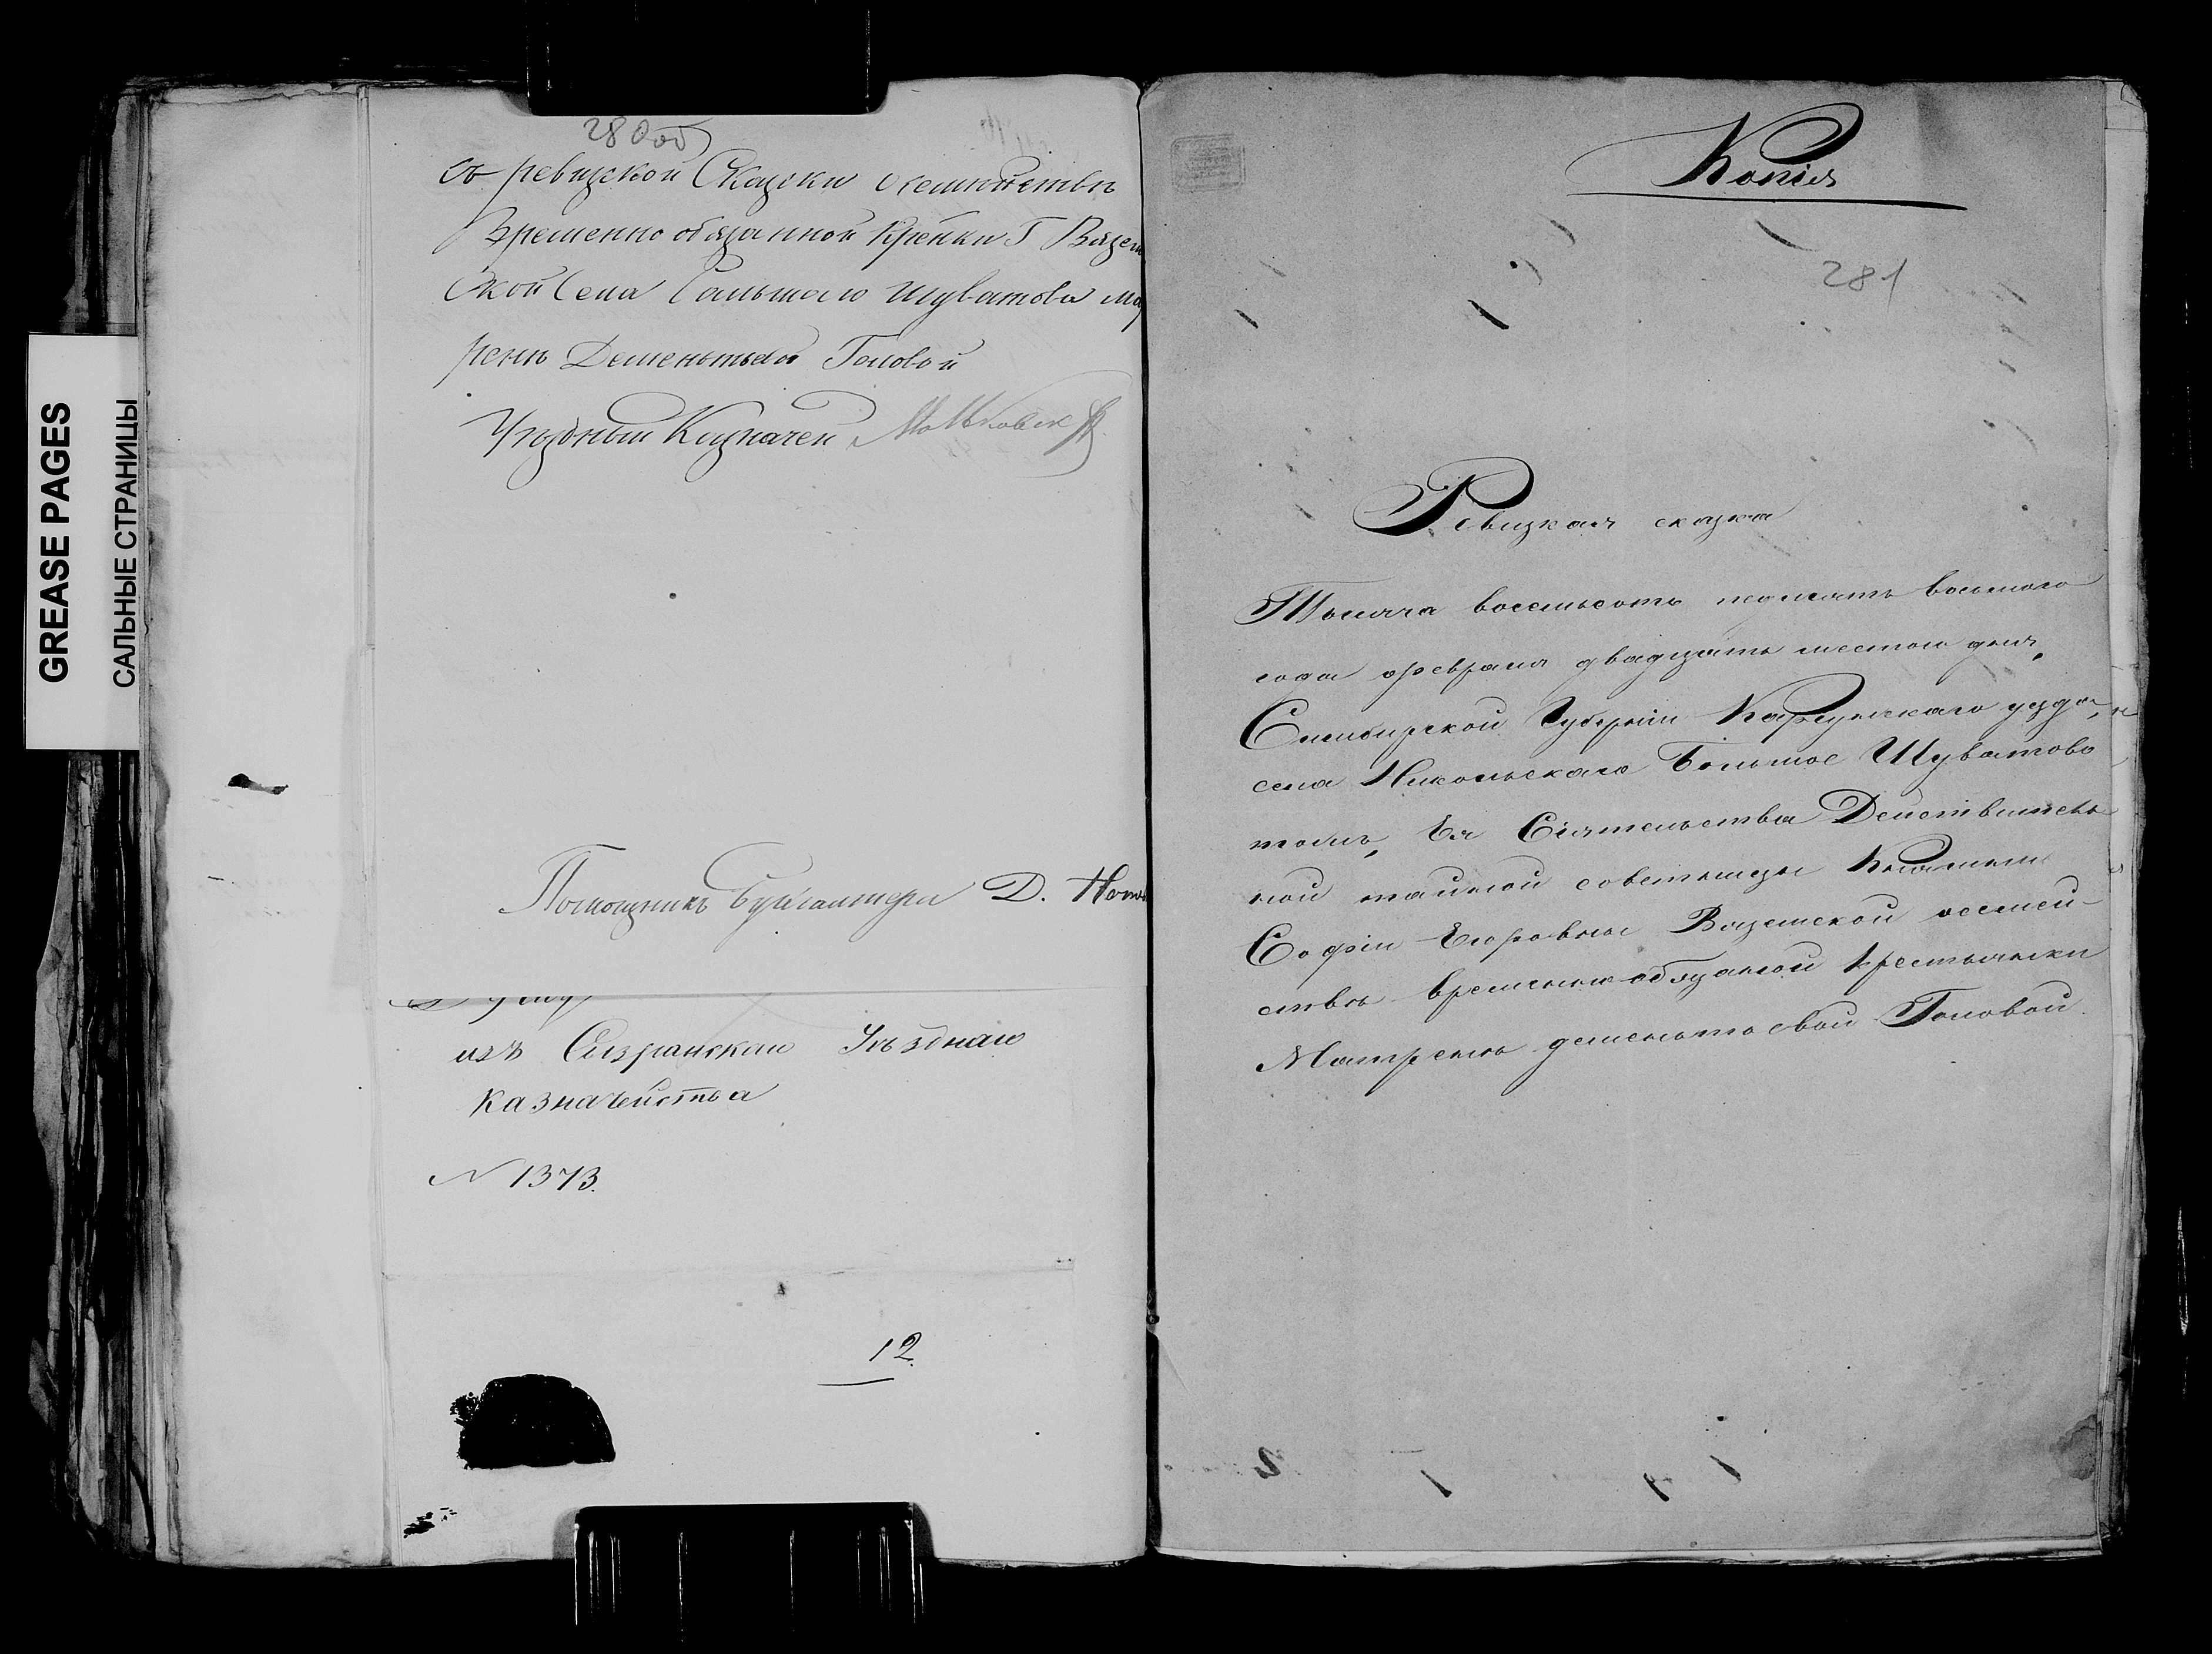 GREASE PAGES
САЛЬНЫЕ СТРАНИЦЫ
280об
съ ревизской Сказки о семействѣ
Временно обязанной Кренки Г Вязем
ской Села Большаго Шуватова Мат
ренѣ Деменьтьевой Головой
Уѣздный Казначей
Помощникъ Бухгалтера Д.
изъ Сызранскаго Уѣзднаго
Казначейства
N 1373.
12
Копія
281
Ревизкая сказка
Тысяча восемьсотъ пядесятъ восьмого
года февраля двадцать шестого дня,
Симбирской Губерніи Карсунскаго уезда, и
села Никольскаго Большое Шуватово
тожъ, Ея Сіятельства Действитель
ной тайной советницы Княгини
Софіи Егоровны Вяземской о семей-
ствѣ временно-обязанной крестьянки
Матрены деменьтьевой Головой.